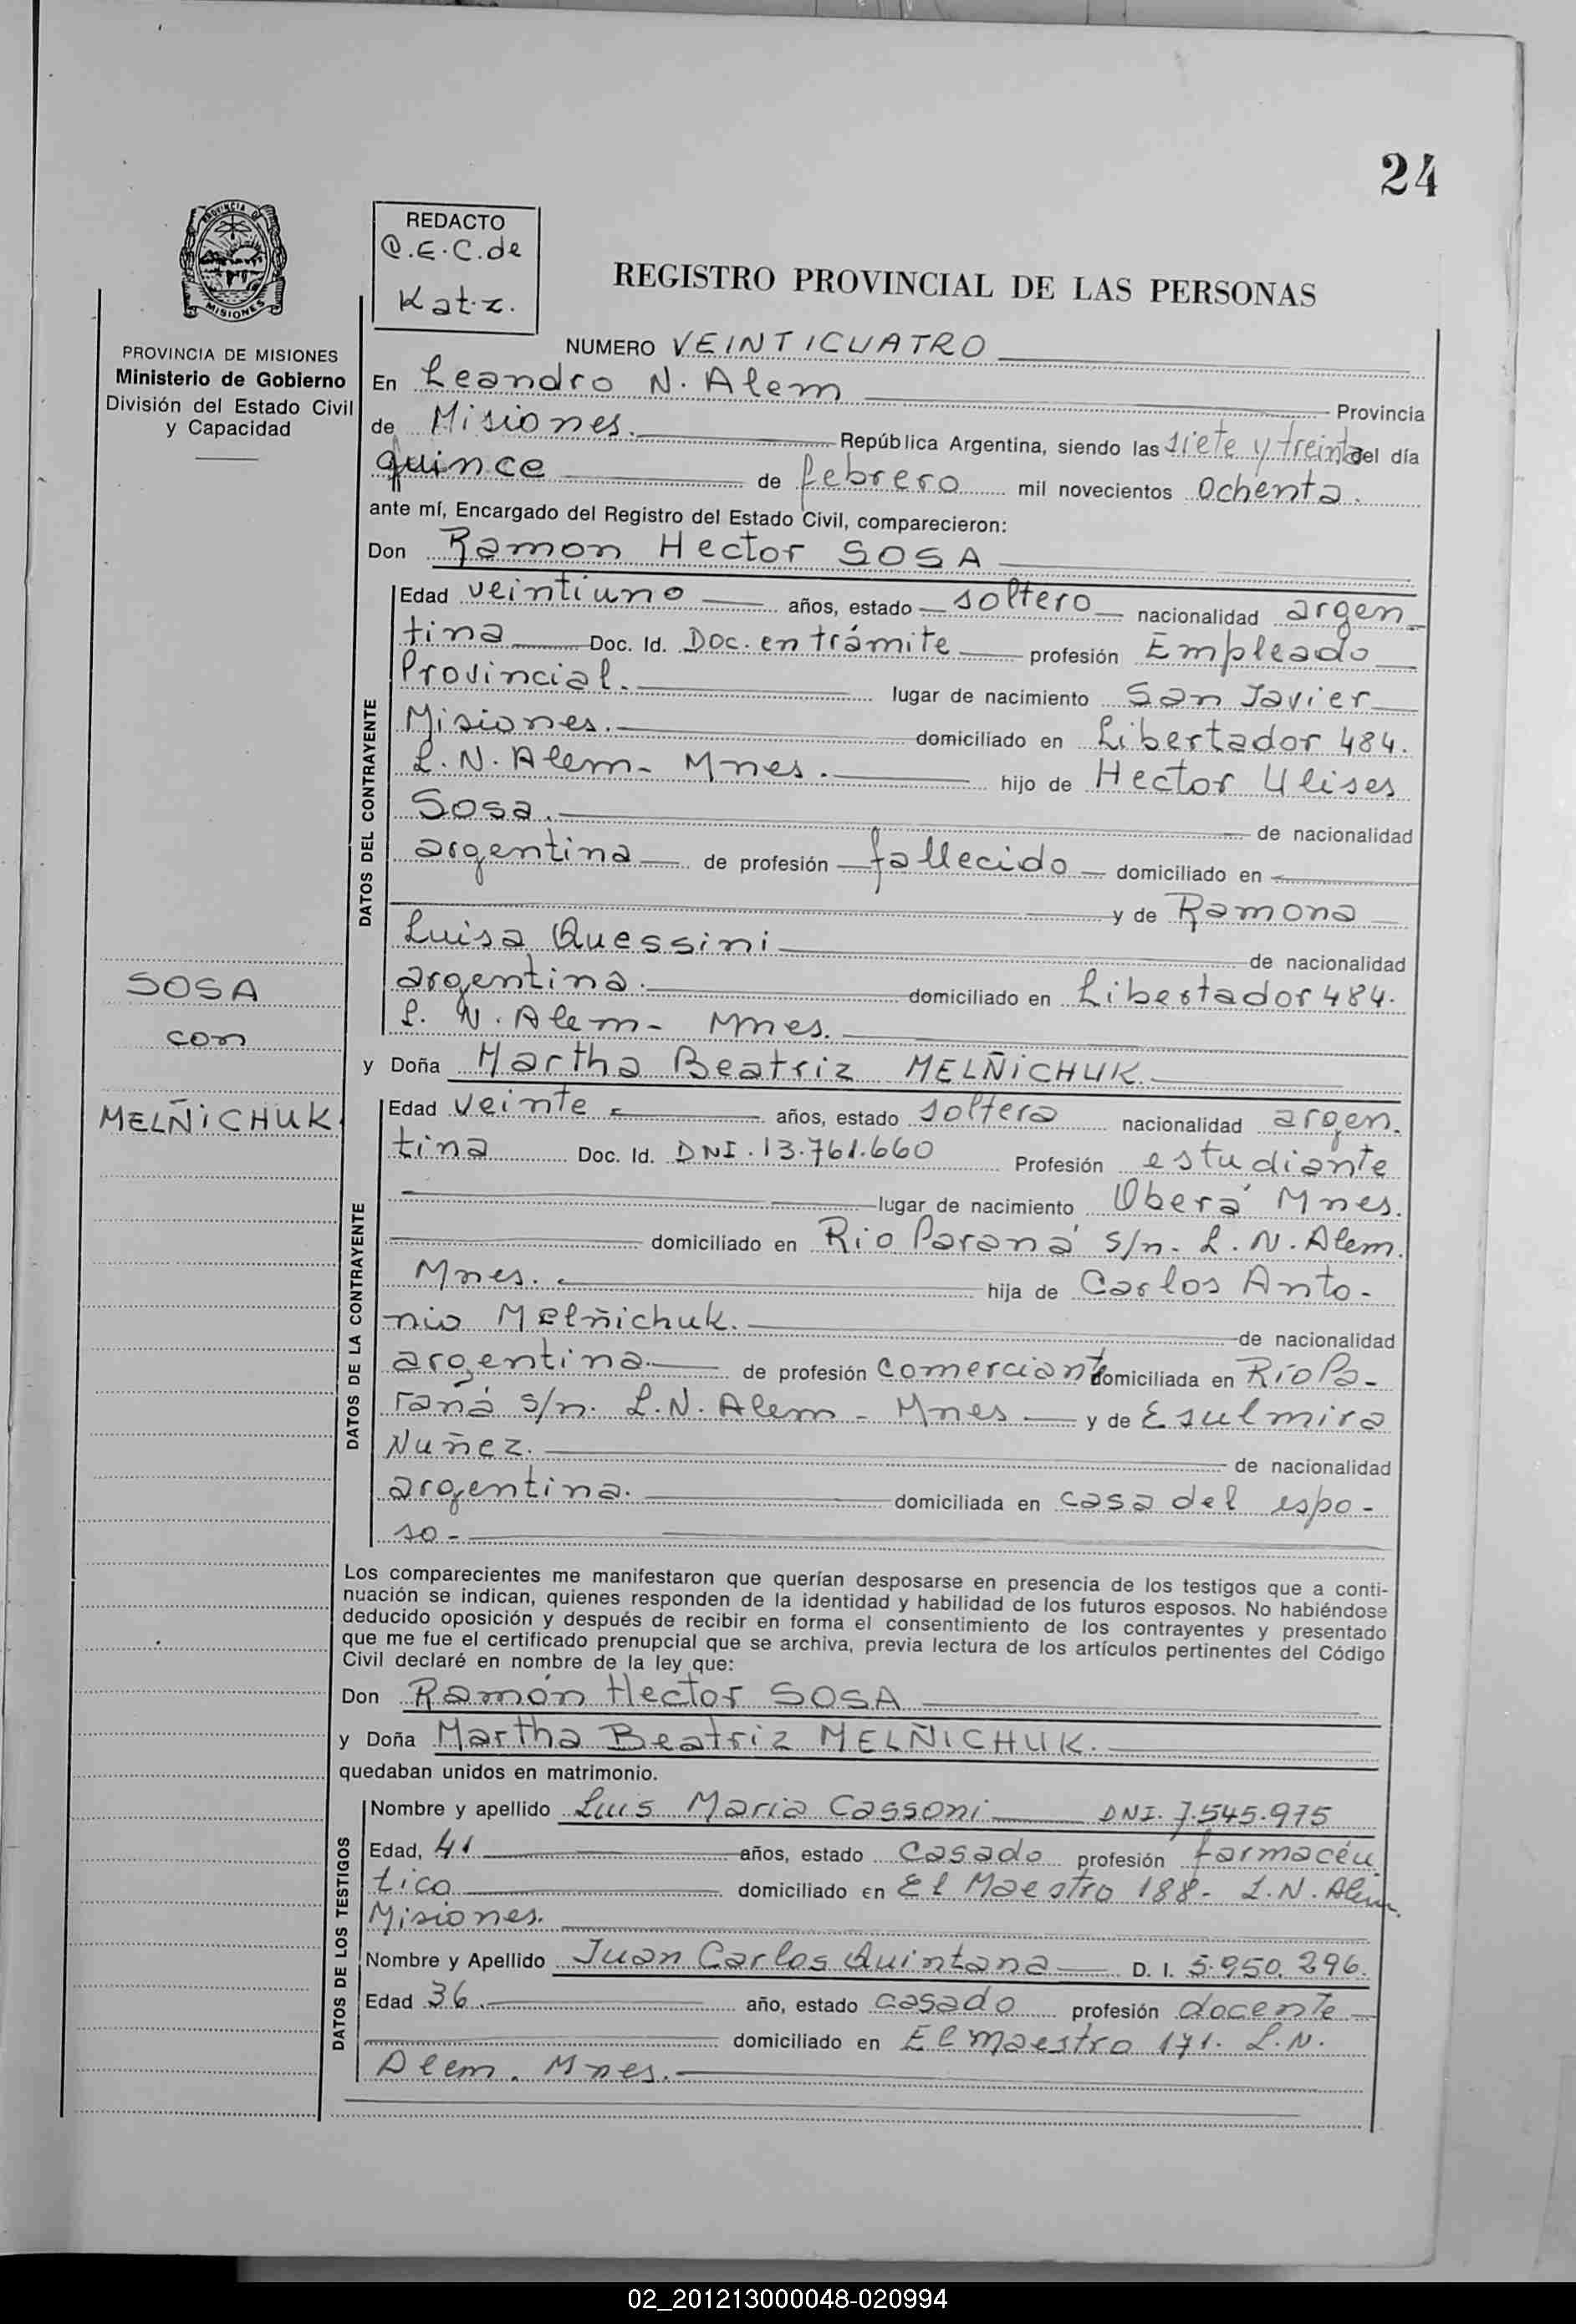 24
PROVINCIA DE
MISIONES
REDACTO
E.C. de
Katz.
REGISTRO PROVINCIAL DE LAS PERSONAS
PROVINCIA DE MISIONES
Ministerio de Gobierno
División del Estado Civil
y Capacidad
NUMERO VEINTICUATRO
En Leandro N. Alem Provincia
de Misiones. República Argentina, siendo las siete y treinta del día
quince de febrero mil novecientos ochenta.
ante mí, Encargado del Registro del Estado Civil, comparecieron:
Don Ramon Hector SOSA
DATOS DEL CONTRAYENTE
Edad veintiuno años, estado soltero nacionalidad argen-
tina Doc. Id. Doc. en trámite profesión Empleado
Provincial. lugar de nacimiento San Javier
Misiones. domiciliado en Libertador 484.
L. N. Alem - Mnes. hijo de Hector Ulises
Sosa. de nacionalidad
argentina de profesión fallecido domiciliado en
y de Ramona
Luisa Quessini de nacionalidad
argentina. domiciliado en Libertador 484.
L. N. Alem - Mnes.
SOSA
con
MELÑICHUK
y Doña Martha Beatriz MELÑICHUK.
DATOS DE LA CONTRAYENTE
Edad veinte años, estado soltera nacionalidad argen-
tina Doc. Id. DNI. 13.761.660 Profesión estudiante
lugar de nacimiento Oberá Mnes.
domiciliado en Rio Paraná s/n. L. N. Alem.
Mnes. hija de Carlos Anto-
nio Melñichuk. de nacionalidad
argentina. de profesión comerciante domiciliada en Río Pa-
raná s/n. L. N. Alem - Mnes y de Esulmira
Nuñez. de nacionalidad
argentina. domiciliada en casa del espo-
so-
Los comparecientes me manifestaron que querían desposarse en presencia de los testigos que a conti-
nuación se indican, quienes responden de la identidad y habilidad de los futuros esposos. No habiéndose
deducido oposición y después de recibir en forma el consentimiento de los contrayentes y presentado
que me fue el certificado prenupcial que se archiva, previa lectura de los artículos pertinentes del Código
Civil declaré en nombre de la ley que:
Don Ramón Hector SOSA
y Doña Martha Beatriz MELÑICHUK.
quedaban unidos en matrimonio.
DATOS DE LOS TESTIGOS
Nombre y apellido Luis Maria Cassoni DNI. 7.545.975
Edad, 41 años, estado casado profesión farmacéu
tico domiciliado en El Maestro 188- L. N. Alem
Misiones.
Nombre y Apellido Juan Carlos Quintana D. I. 5.950.296.
Edad 36. año, estado casado profesión docente
domiciliado en El maestro 171. L. N.
Alem. Mnes.
02_201213000048-020994